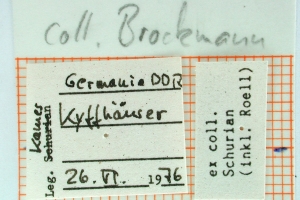 coll. Brockmann
Germania DDR
Kyffhäuser
26. VI. 1976
Leg. Schurian
Kames
ex coll.
Schurian
(inkl. Roell)